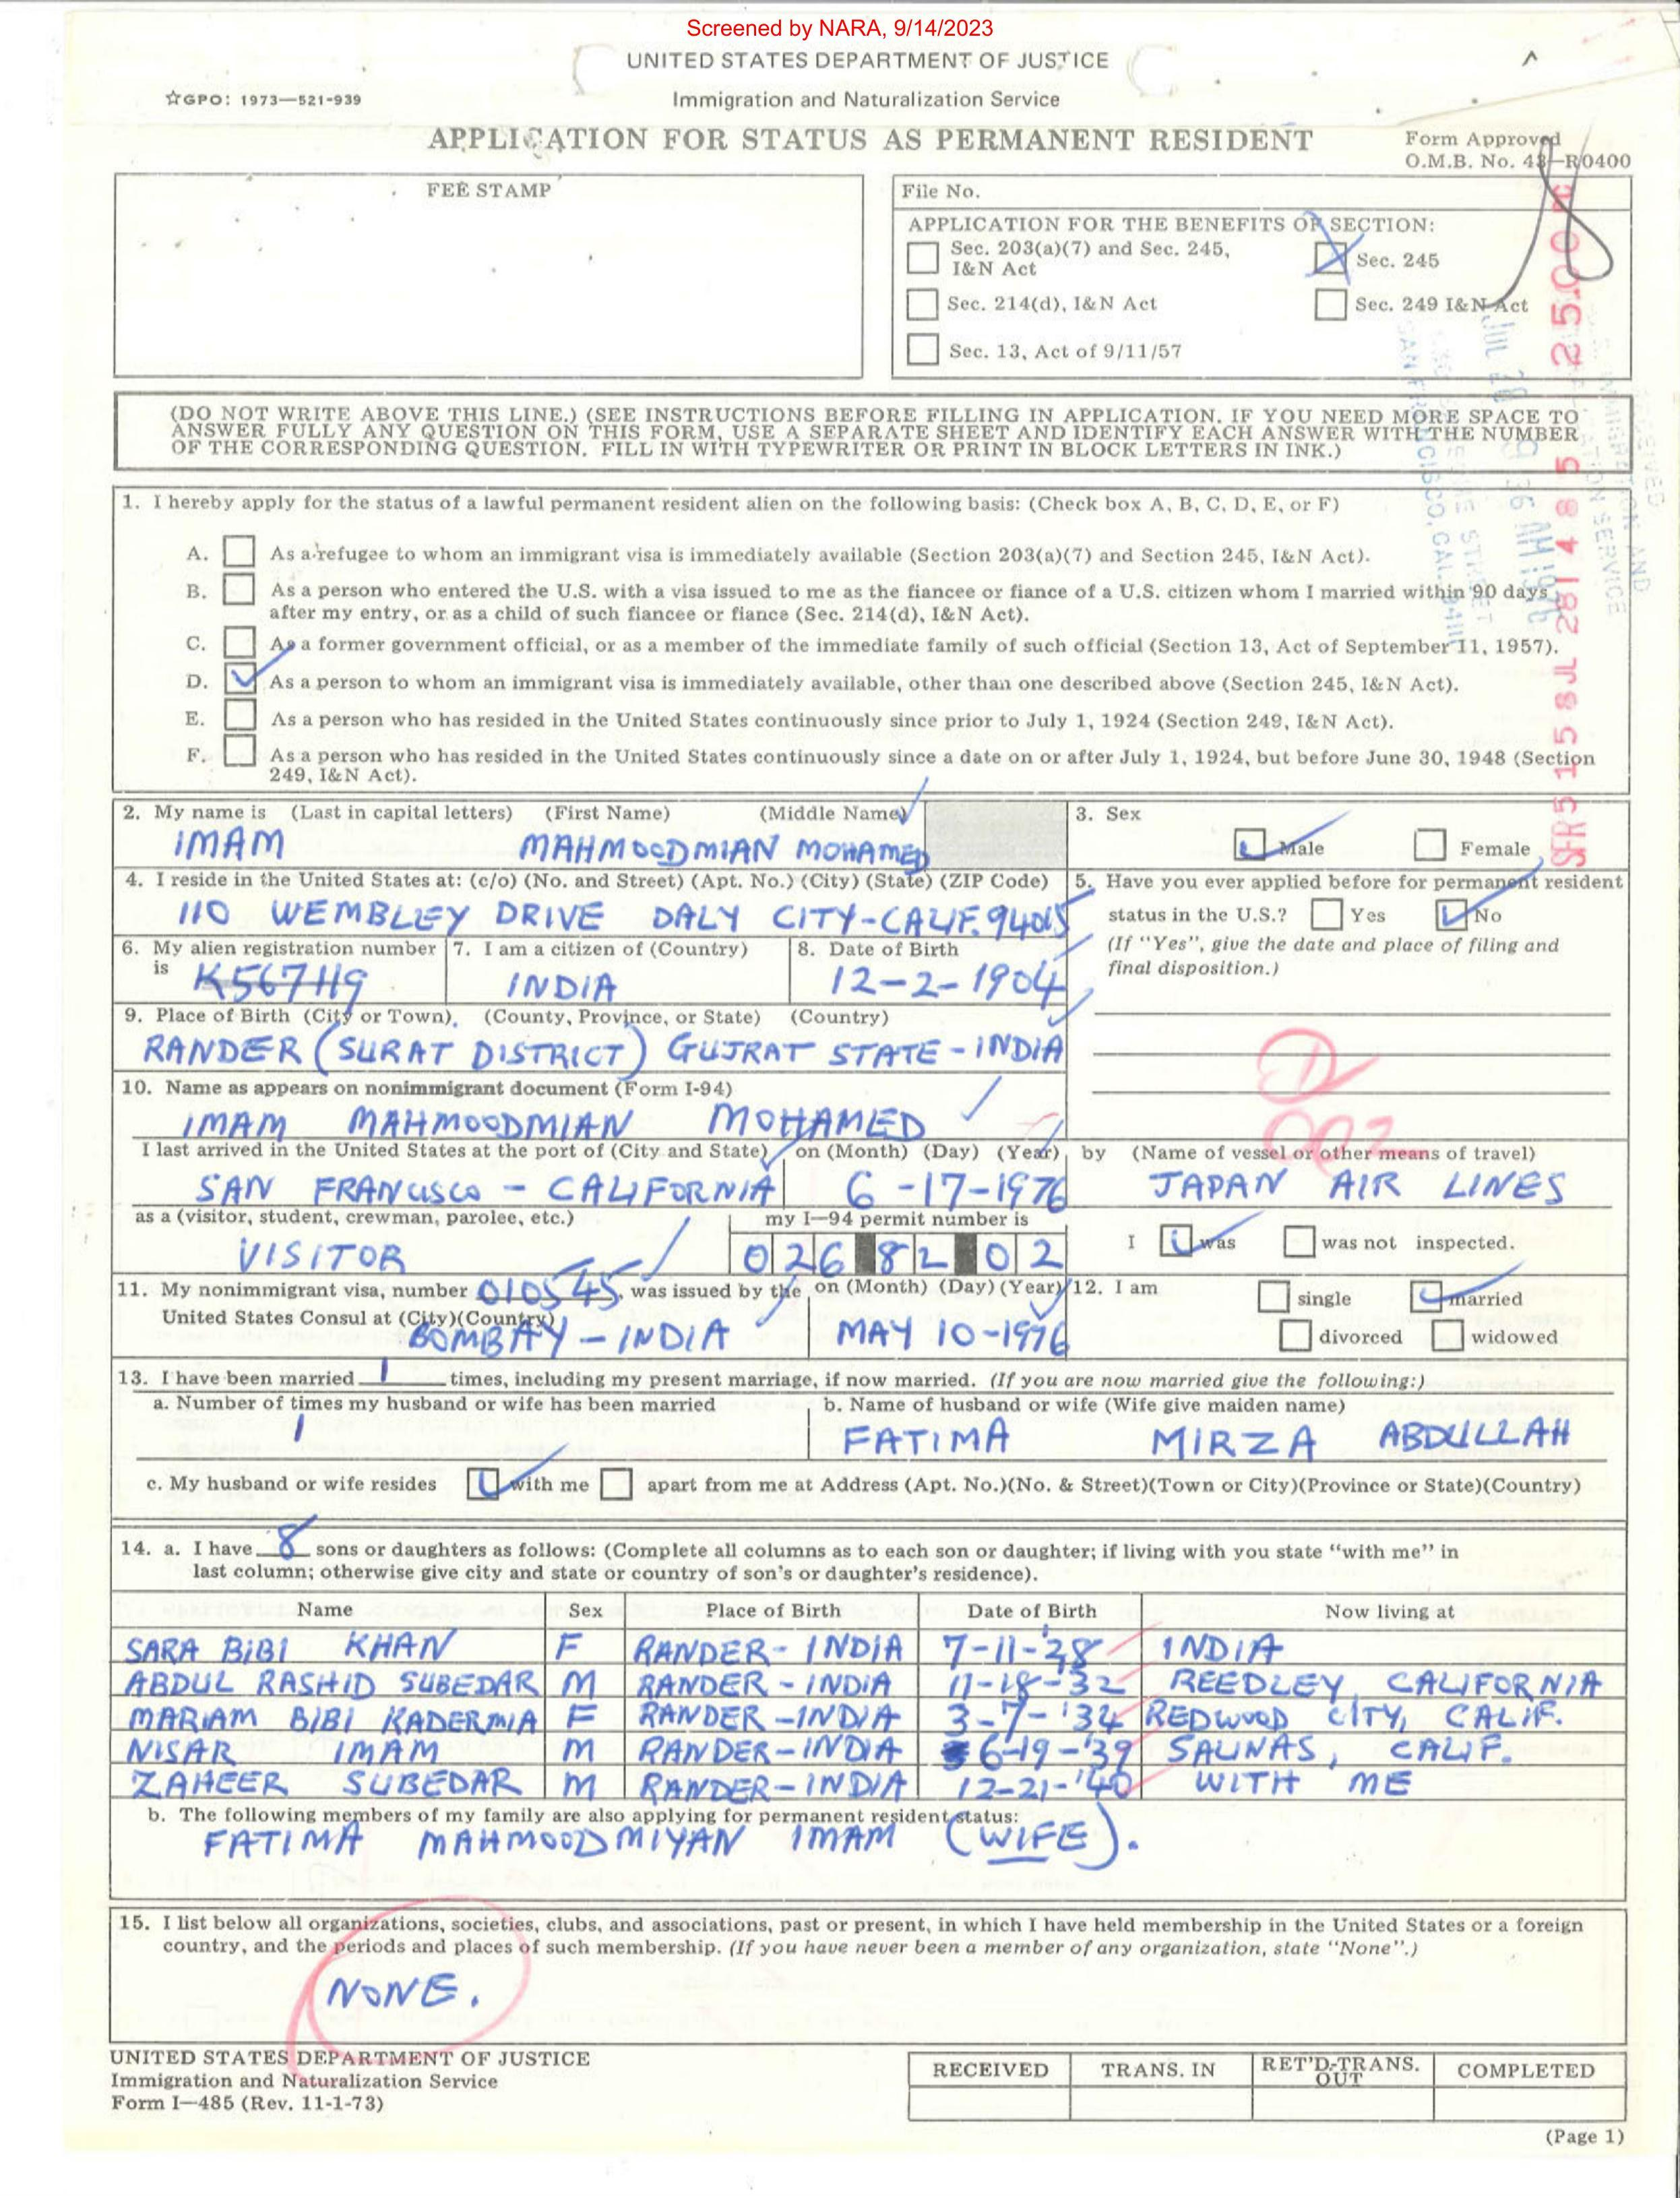 Screened by NARA, 9/14/2023
UNITED STATES DEPARTMENT OF JUSTICE
☆GPO: 1973—521-939
Immigration and Naturalization Service
APPLICATION FOR STATUS AS PERMANENT RESIDENT
Form Approved
O.M.B. No. 43—R0400
FEE STAMP
File No.
APPLICATION FOR THE BENEFITS OF SECTION:
Sec. 203(a)(7) and Sec. 245, I&N Act
Sec. 245
Sec. 214(d), I&N Act
Sec. 249 I&N Act
Sec. 13, Act of 9/11/57
(DO NOT WRITE ABOVE THIS LINE.) (SEE INSTRUCTIONS BEFORE FILLING IN APPLICATION. IF YOU NEED MORE SPACE TO
ANSWER FULLY ANY QUESTION ON THIS FORM, USE A SEPARATE SHEET AND IDENTIFY EACH ANSWER WITH THE NUMBER
OF THE CORRESPONDING QUESTION. FILL IN WITH TYPEWRITER OR PRINT IN BLOCK LETTERS IN INK.)
1. I hereby apply for the status of a lawful permanent resident alien on the following basis: (Check box A, B, C, D, E, or F)
A. As a refugee to whom an immigrant visa is immediately available (Section 203(a)(7) and Section 245, I&N Act).
B. As a person who entered the U.S. with a visa issued to me as the fiancee or fiance of a U.S. citizen whom I married within 90 days
after my entry, or as a child of such fiancee or fiance (Sec. 214(d), I&N Act).
C. As a former government official, or as a member of the immediate family of such official (Section 13, Act of September 11, 1957).
D. As a person to whom an immigrant visa is immediately available, other than one described above (Section 245, I&N Act).
E. As a person who has resided in the United States continuously since prior to July 1, 1924 (Section 249, I&N Act).
F. As a person who has resided in the United States continuously since a date on or after July 1, 1924, but before June 30, 1948 (Section
249, I&N Act).
2. My name is (Last in capital letters) (First Name) (Middle Name)
IMAM MAHMOODMIAN MOHAMED
3. Sex
Male Female
4. I reside in the United States at: (c/o) (No. and Street) (Apt. No.) (City) (State) (ZIP Code)
110 WEMBLEY DRIVE DALY CITY-CALIF. 94015
5. Have you ever applied before for permanent resident
status in the U.S.? Yes No
(If "Yes", give the date and place of filing and
final disposition.)
6. My alien registration number is
K567119
7. I am a citizen of (Country)
INDIA
8. Date of Birth
12-2-1904
9. Place of Birth (City or Town), (County, Province, or State) (Country)
RANDER (SURAT DISTRICT) GUJRAT STATE - INDIA
D
002
10. Name as appears on nonimmigrant document (Form I-94)
IMAM MAHMOODMIAN MOHAMED
I last arrived in the United States at the port of (City and State) on (Month) (Day) (Year) by (Name of vessel or other means of travel)
SAN FRANCISCO - CALIFORNIA 6-17-1976 JAPAN AIR LINES
as a (visitor, student, crewman, parolee, etc.) my I—94 permit number is
VISITOR 026 82 02
I was was not inspected.
11. My nonimmigrant visa, number 010545, was issued by the on (Month) (Day) (Year)
United States Consul at (City)(Country)
BOMBAY - INDIA MAY 10-1976
12. I am single married
divorced widowed
13. I have been married 1 times, including my present marriage, if now married. (If you are now married give the following:)
a. Number of times my husband or wife has been married
1
b. Name of husband or wife (Wife give maiden name)
FATIMA MIRZA ABDULLAH
c. My husband or wife resides with me apart from me at Address (Apt. No.)(No. & Street)(Town or City)(Province or State)(Country)
14. a. I have 8 sons or daughters as follows: (Complete all columns as to each son or daughter; if living with you state "with me" in
last column; otherwise give city and state or country of son's or daughter's residence).
Name Sex Place of Birth Date of Birth Now living at
SARA BIBI KHAN F RANDER - INDIA 7-11-'28 INDIA
ABDUL RASHID SUBEDAR M RANDER - INDIA 11-18-32 REEDLEY, CALIFORNIA
MARIAM BIBI KADERMIA F RANDER - INDIA 3-7-'34 REDWOOD CITY, CALIF.
NISAR IMAM M RANDER - INDIA 6-19-'39 SALINAS, CALIF.
ZAHEER SUBEDAR M RANDER - INDIA 12-21-'40 WITH ME
b. The following members of my family are also applying for permanent resident status:
FATIMA MAHMOODMIYAN IMAM (WIFE).
15. I list below all organizations, societies, clubs, and associations, past or present, in which I have held membership in the United States or a foreign
country, and the periods and places of such membership. (If you have never been a member of any organization, state "None".)
NONE.
UNITED STATES DEPARTMENT OF JUSTICE
Immigration and Naturalization Service
Form I—485 (Rev. 11-1-73)
RECEIVED TRANS. IN RET'D-TRANS. OUT COMPLETED
(Page 1)